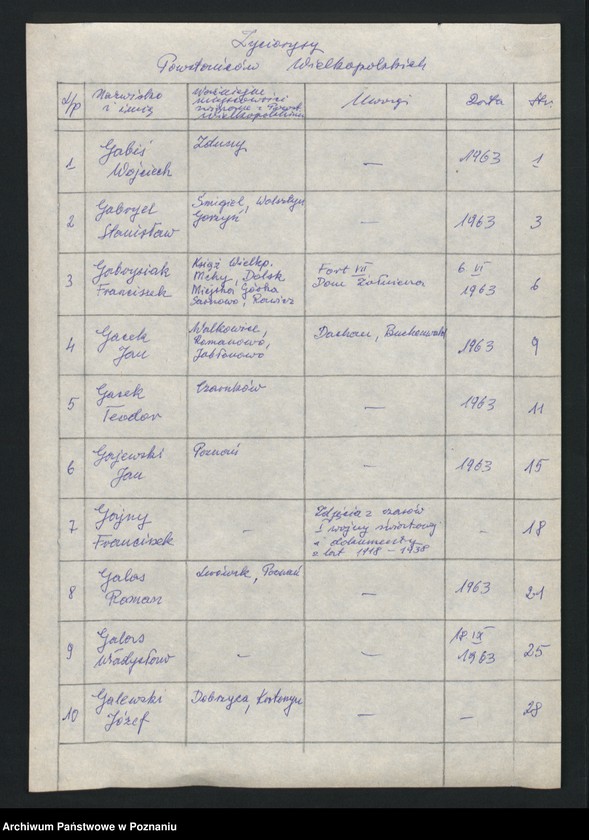 Życiorysy
Powstańców Wielkopolskich
L/p Nazwisko i imię Ważniejsze miejscowości związane z Powst. Wielkopolskim Uwagi Data Str.
1 Gabiś Wojciech Zduny — 1963 1
2 Gabryel Stanisław Śmigiel, Wolsztyn Gorzyń — 1963 3
3 Gabrysiak Franciszek Książ Wielkp. Mchy, Dolsk Miejska Górka Sarnowo, Rawicz Fort VII Dom Żołnierza 6 VI 1963 6
4 Gacek Jan Walkowice, Romanowo, Jabłonowo Dachau, Buchenwald 1963 9
5 Gacek Teodor Czarnków — 1963 11
6 Gajewski Jan Poznań — 1963 15
7 Gajny Franciszek - Zdjęcia z czasów I wojny światowej i dokumenty z lat 1918 - 1938 - 18
8 Galas Roman Lwówek, Poznań — 1963 21
9 Galas Władysław - — 18 IX 1963 25
10 Galewski Józef Dobrzyca, Koźmin — — 28
Archiwum Państwowe w Poznaniu